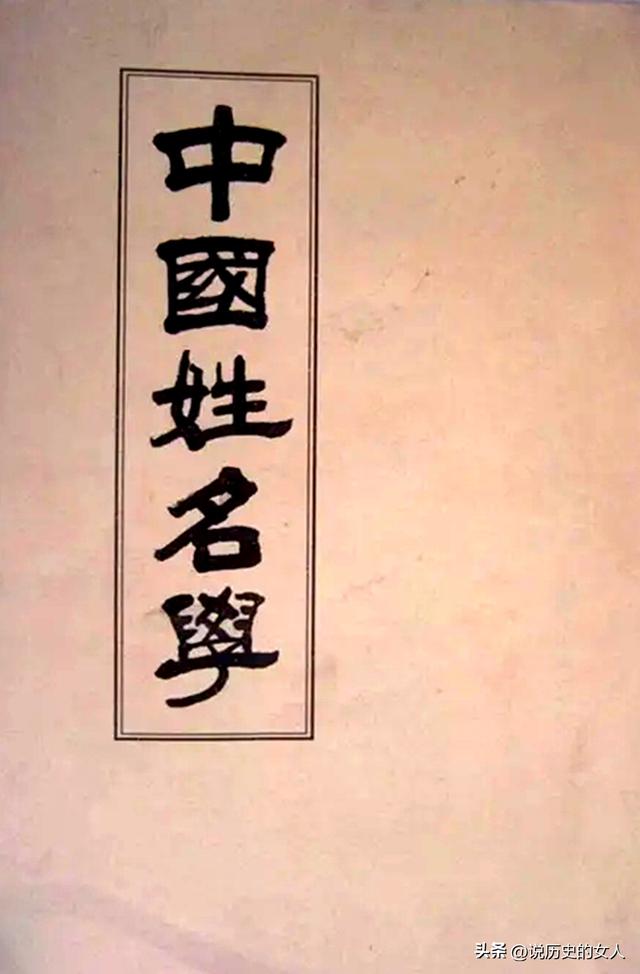 中國姓名學
头条 @说历史的女人